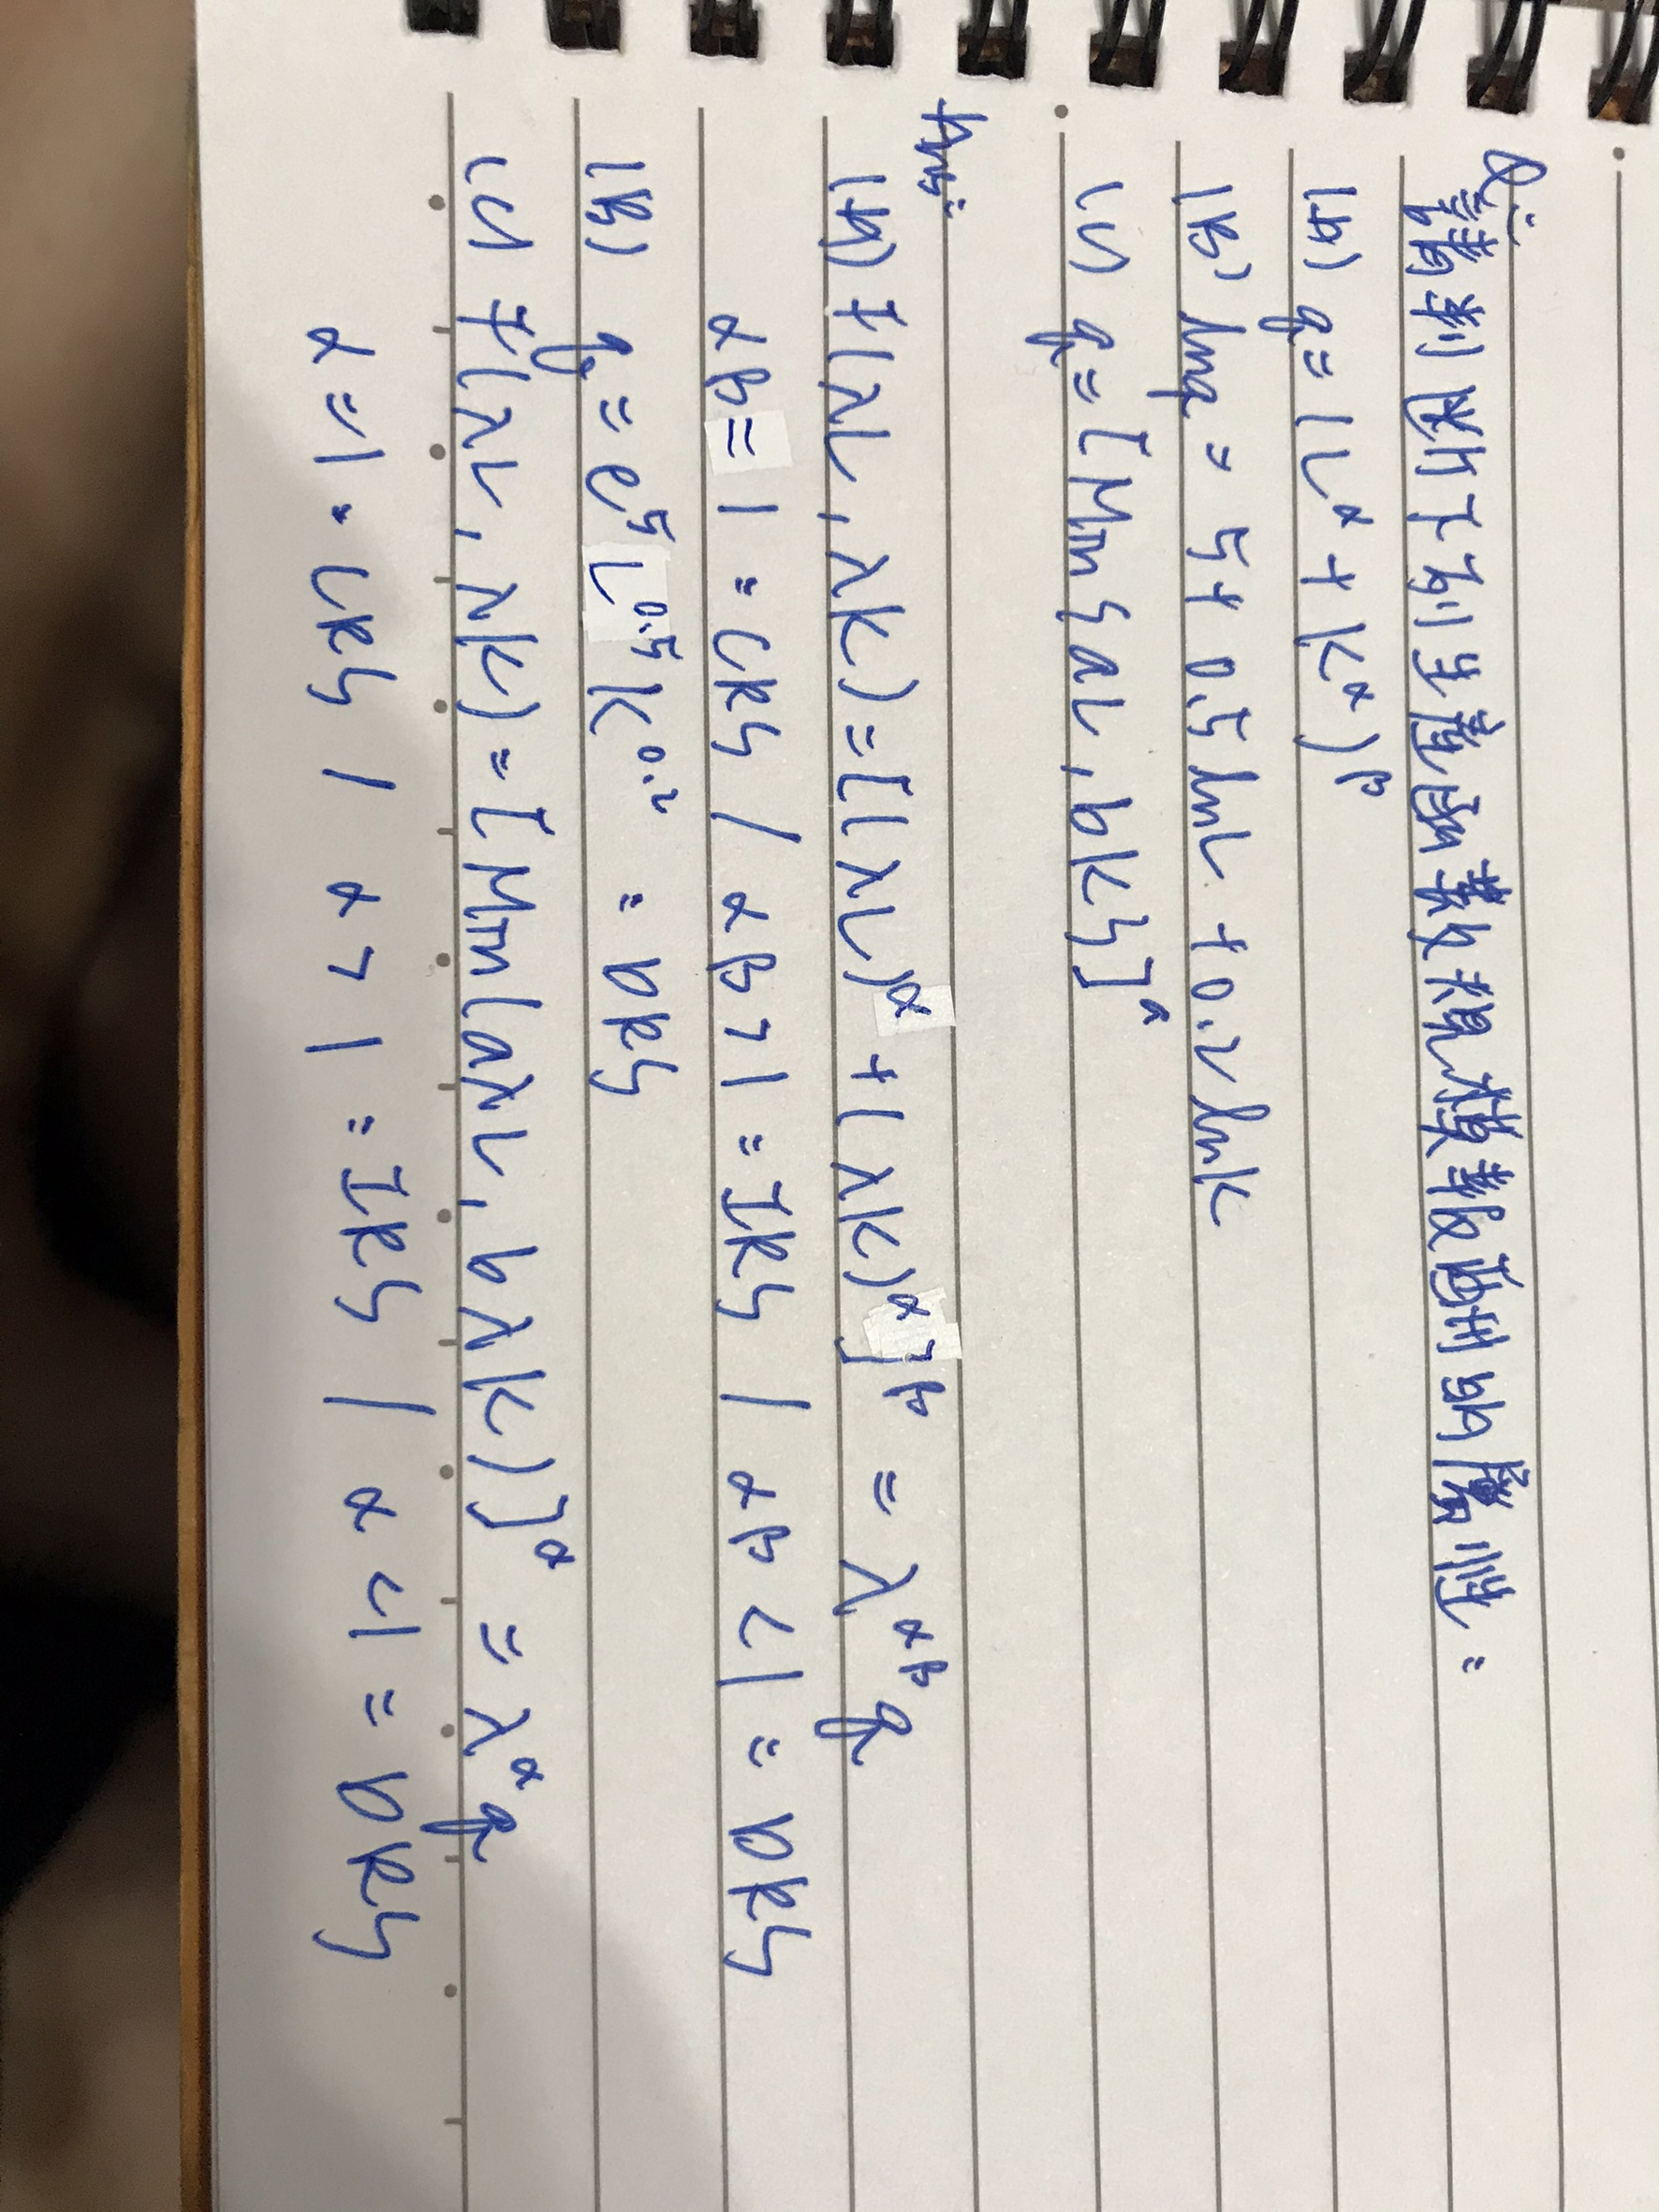 Q: 請判斷下列生產函數規模報酬的屬性:
(A) q = (L^α + K^α)^β
(B) lnq = 5 + 0.5 lnL + 0.2 lnK
(C) q = [Min{aL, bK}]^α
Ans:
(A) f(λL, λK) = [(λL)^α + (λK)^α]^β = λ^αβ q
αβ = 1 = CRS / αβ > 1 = IRS / αβ < 1 = DRS
(B) q = e^5 L^0.5 K^0.2 = DRS
(C) f(λL, λK) = [Min(aλL, bλK)]^α = λ^α q
α = 1 = CRS / α > 1 = IRS / α < 1 = DRS